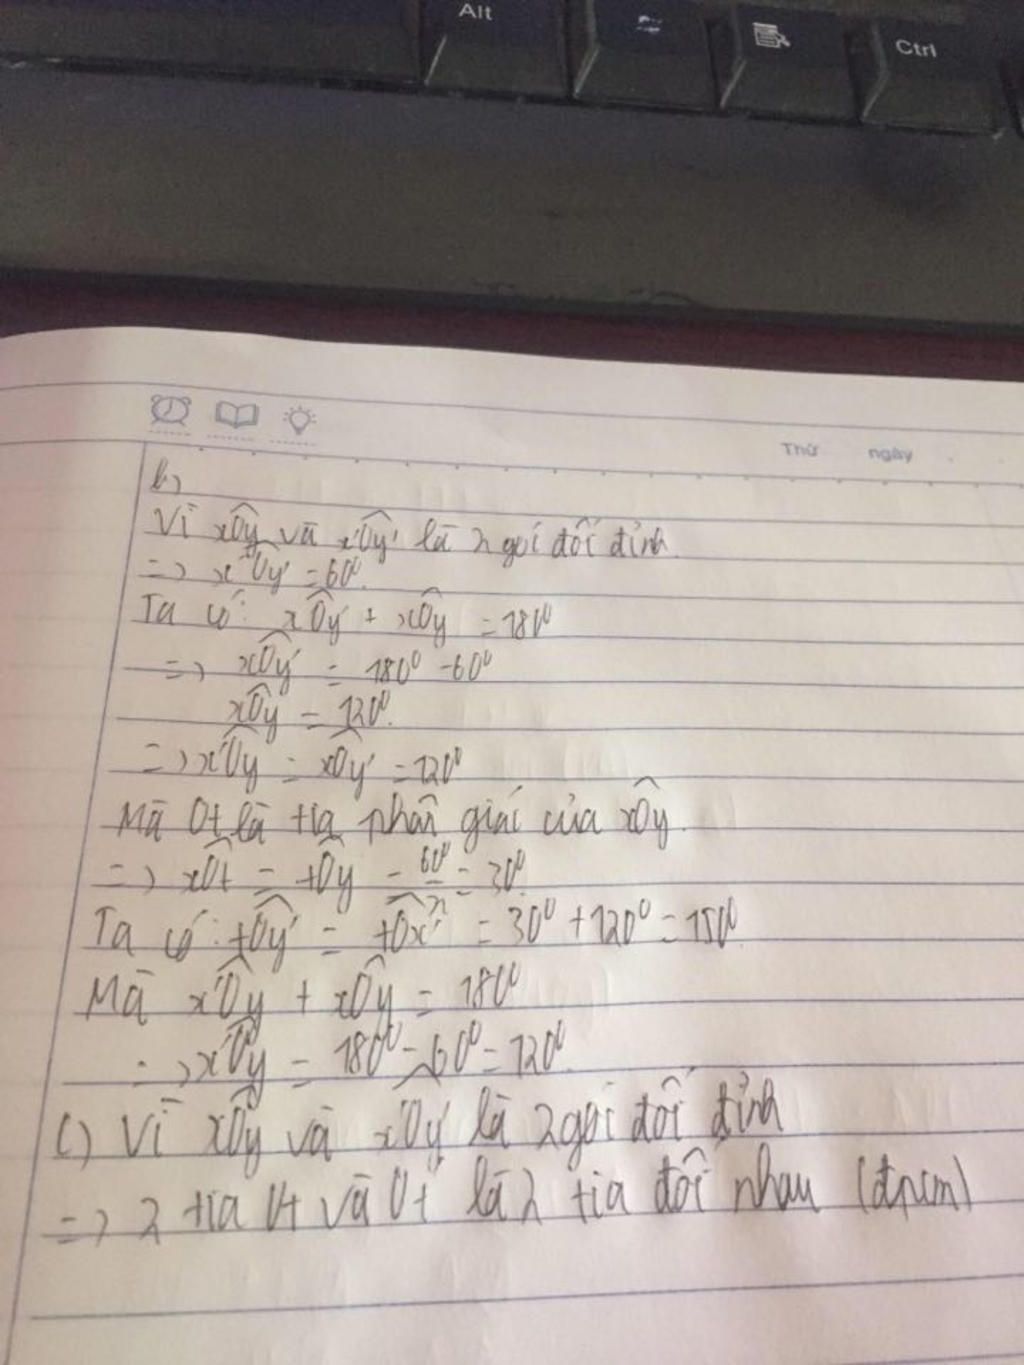 Alt
Ctrl
Thứ ngày
b)
Vì xOy và x'Oy' là 2 góc đối đỉnh.
=> x'Oy' = 60°.
Ta có: xOy' + xOy = 180°
=> xOy' = 180° - 60°
xOy = 120°.
=> x'Oy = xOy' = 120°
Mà Ot là tia phân giác của xOy.
=> xOt = tOy = 60°/2 = 30°.
Ta có: tOy' = tOx' = 30° + 120° = 150°
Mà x'Oy + xOy = 180°
=> x'Oy = 180° - 60° = 120°.
c) Vì xOy và x'Oy' là 2 góc đối đỉnh
=> 2 tia Ot và Ot' là 2 tia đối nhau (đpcm)